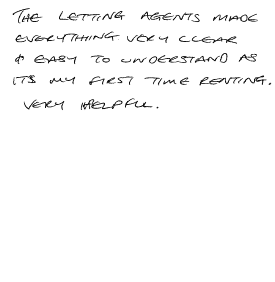 THE LETTING AGENTS MADE
EVERYTHING VERY CLEAR
& EASY TO UNDERSTAND AS
ITS MY FIRST TIME RENTING.
VERY HELPFUL.